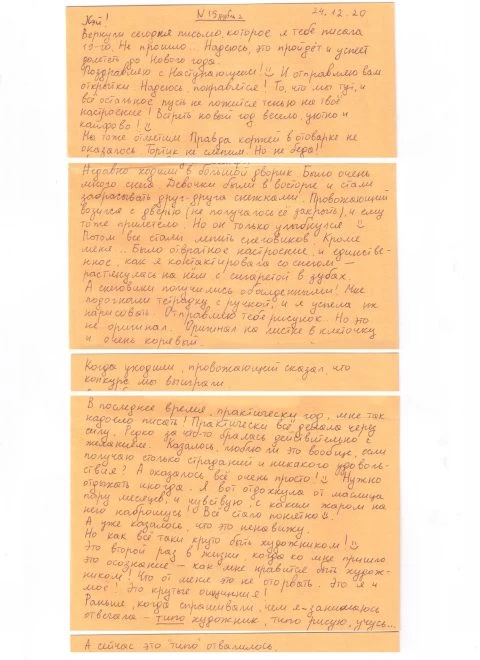 24.12.20
Хэй!
Вернули сегодня письмо, которое я тебе писала
19-го. Не прошло... Надеюсь, это пройдёт и успеет
долететь до Нового года.
Поздравляю с Наступающим! И отправляю вам
открытки. Надеюсь, понравятся! То, что мы тут, и
всё остальное пусть не ложится тенью на твоё
настроение! Встреть новый год весело, уютно и
кайфово!
Мы тоже отметим. Правда коржей в отоварке не
оказалось. Тортик не слепим. Но не беда!!
Недавно ходили в большой дворик. Было очень
много снега. Девочки были в восторге и стали
забрасывать друг-друга снежками. Провожающий
возился с дверью (не получалось её закрыть), и ему
тоже прилетело. Но он только улыбнулся
Потом все стали лепить снеговиков. Кроме
меня... Было отвратное настроение, и единстве-
нное, как я контактировала со снегом —
растянулась на нём с сигаретой в зубах.
А снеговики получились обалденными! Мне
подогнали тетрадку с ручкой, и я успела их
нарисовать. Отправляю тебе рисунок. Но это
не оригинал. Оригинал на листке в клеточку
и очень корявый.
Когда уходили, провожающий сказал, что
конкурс мы выиграли.
В последнее время, практически год, мне так
надоело писать! Практически всё делала через
силу. Редко за что-то бралась действительно с
желанием. Казалось, люблю ли это вообще, если
получаю столько страданий и никакого удоволь-
ствия? А оказалось, всё очень просто! Нужно
отдыхать иногда. Я вот отдохнула от маслица
пару месяцев и чувствую, с каким жаром на
него наброшусь! Всё стало понятно!
А уже казалось, что это ненавижу.
Но как всё таки круто быть художником!
Это второй раз в жизни, когда ко мне пришло
это осознание — как мне нравится быть худож-
ником! Что от меня это не оторвать. Это я и
моё! Это крутые ощущения!
Раньше, когда спрашивали, чем я занимаюсь
отвечала – типо художник, типо рисую, учусь...
А сейчас это "типо" отвалилось.